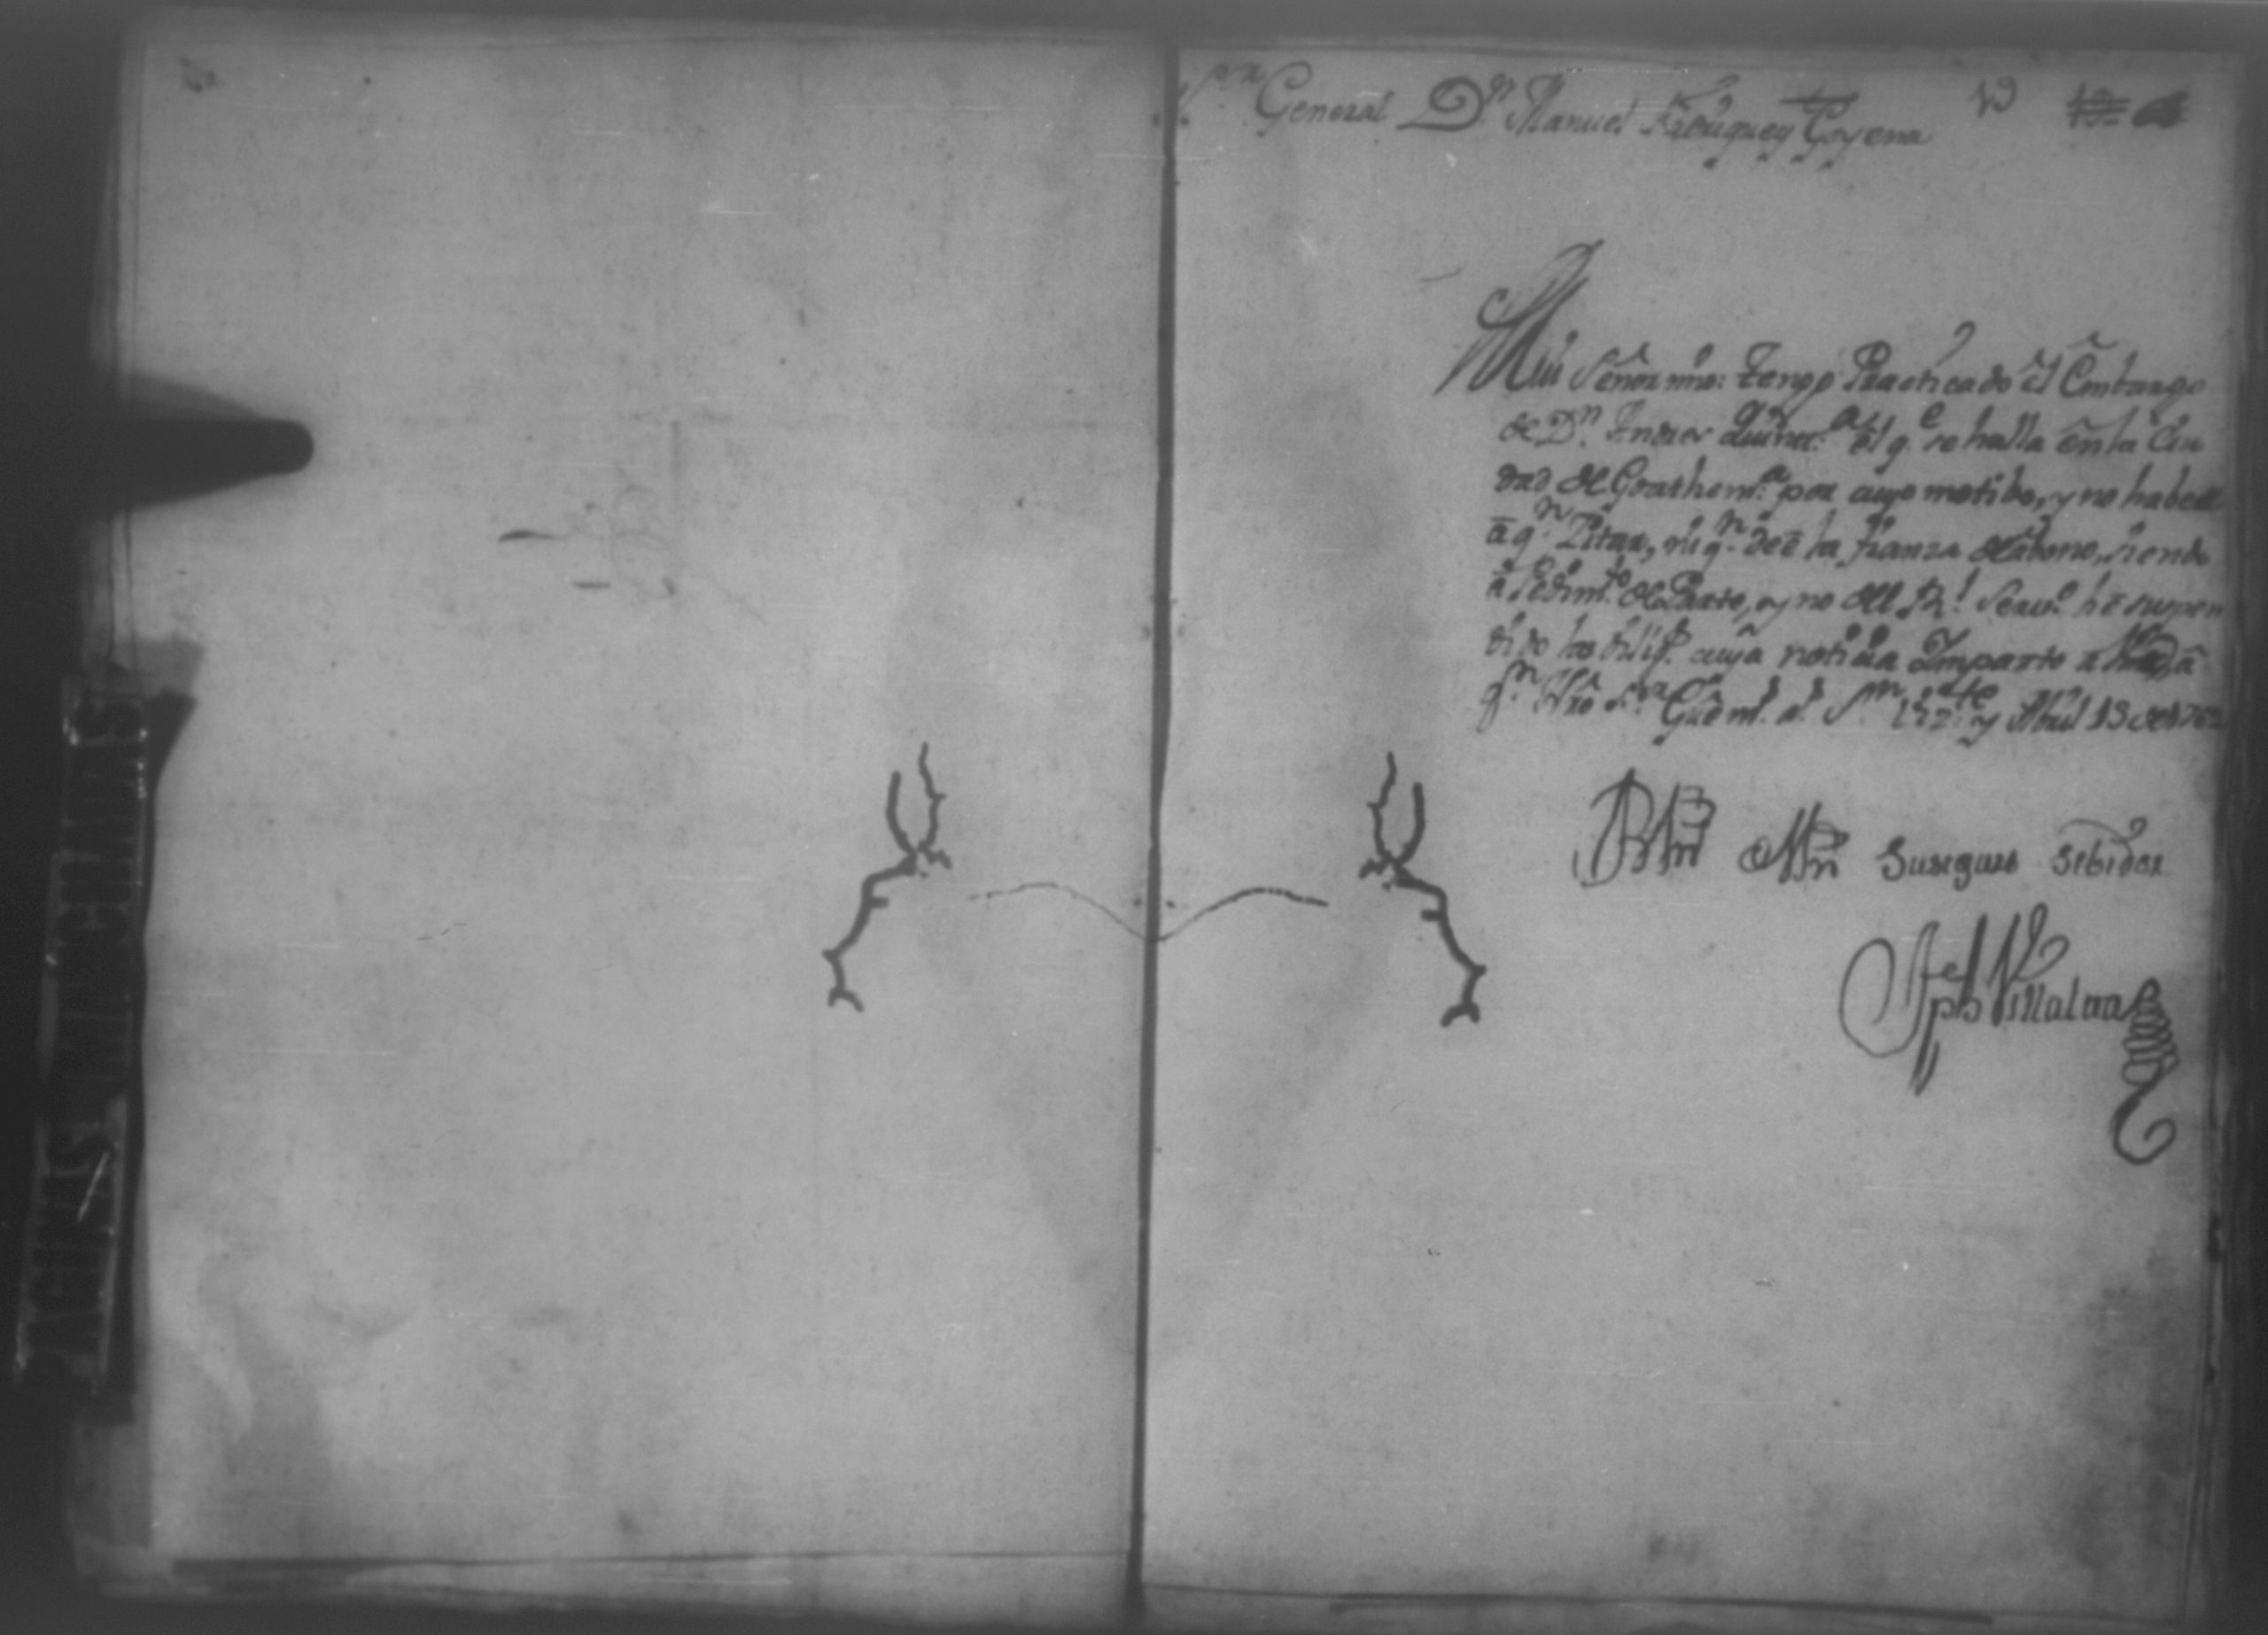 S.ʳ General Dⁿ Manuel Goyena 13
Mui Señor mio: Tengo Practicado el Embargo
de Dⁿ. Andres el q.ᵉ se halla en la Ciu
dad de Goathem.ª por cuyo motibo, y no haber
a q.ⁿ Zitar, ni q.ⁿ deé la fianza de abono, siendo
a Pedim.ᵗᵒ de Parte, y no del R.ˡ Serv.º hé suspen
dido las dilig.ˢ cuya noticia Imparto a Vmd, á
q.ⁿ Ntrō S.ʳ Gūe m.ˢ a.ˢ S.ⁿ y Abril 13 de 1762
BLM de Vm Su seguro Serbidor
Jph Villalva